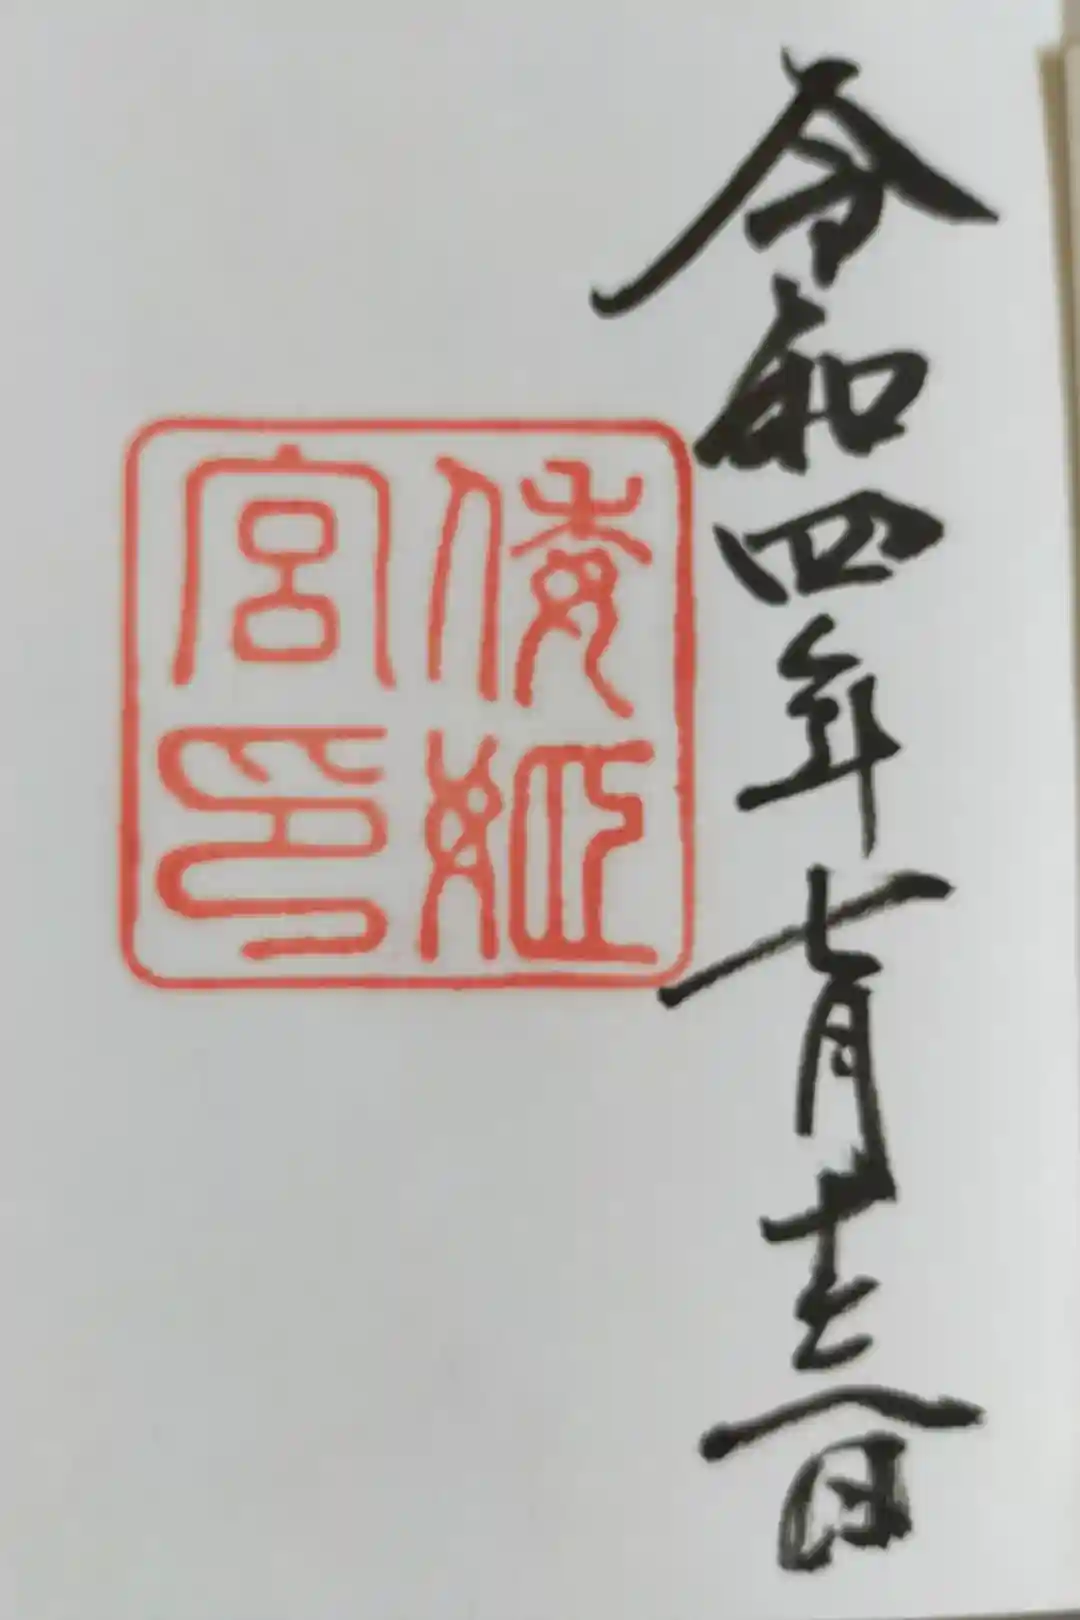 令和四年七月十三日
倭姫
宮印